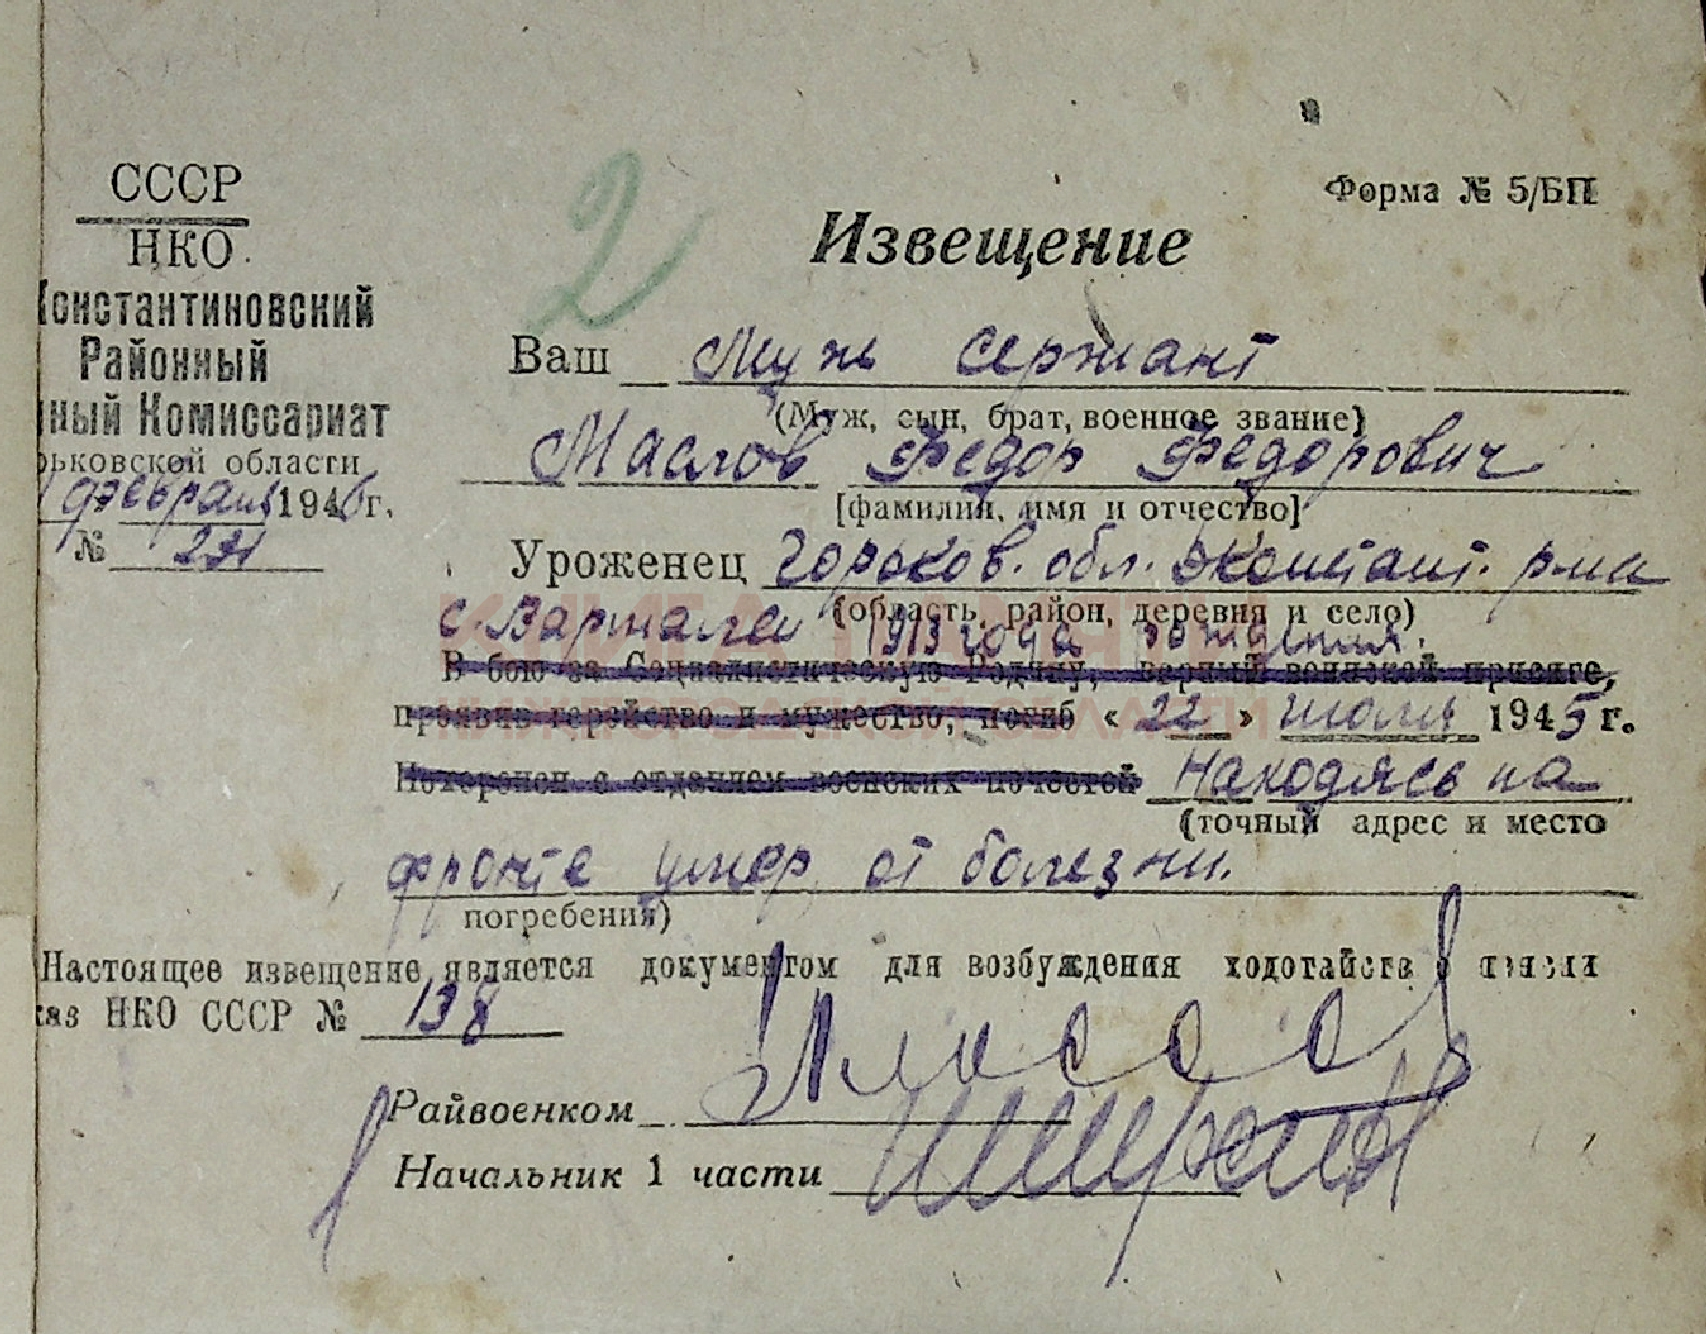 СССР
НКО
Форма № 5/БП
2
Извещение
онстантиновский
Районный
ный Комиссариат
рьковской области
февраля 1946 г.
№ 231
Ваш муж сержант
(Муж, сын, брат, военное звание)
Маслов Федор Федорович
[фамилия, имя и отчество]
Уроженец Горьков. обл. Дконстант. р-на
(область, район, деревня и село)
с. Варгалеи 1913 года рождения.
КНИГА ПАМЯТИ
НИЖЕГОРОДСКОЙ ОБЛАСТИ
В бою за Социалистическую Родину, верный воинской присяге,
проявив геройство и мужество, погиб « 22 » июля 1945 г.
Похоронен с отданием воинских почестей Находясь на
(точный адрес и место
фронте умер от болезни.
погребения)
Настоящее извещение является документом для возбуждения ходотайств
каз НКО СССР № 138
Райвоенком
Начальник 1 части